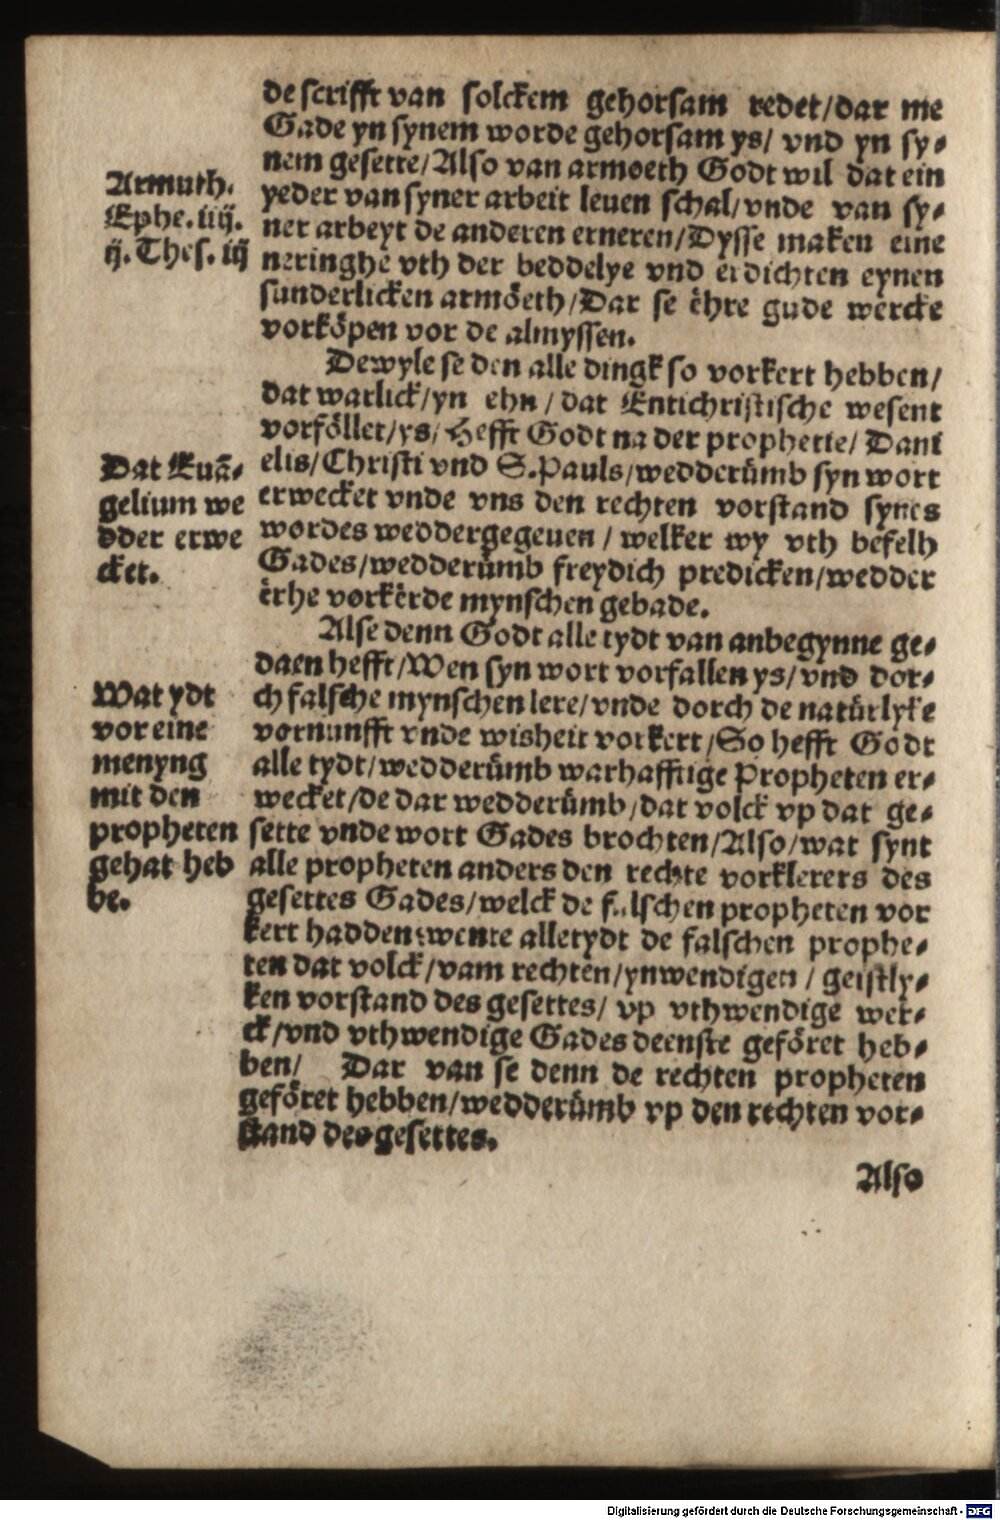 de scrifft van solckem gehorsam redet/dar me
Gade yn synem worde gehorsam ys/ vnd yn sy⸗
nem gesette/Also van armoeth Godt wil dat ein
yeder van syner arbeit leuen schal/vnde van sy⸗
ner arbeyt de anderen erneren/Dysse maken eine
neringhe vth der beddelye vnd erdichten eynen
sunderlicken armöeth/Dar se ëhre gude wercke
vorköpen vor de almyssen.
Armuth.
Ephe. iiij.
ij. Thes. iij
Dewyle se den alle dingk so vorkert hebben/
dat warlick/yn ehn/dat Entichristische wesent
vorföllet/ys/Hefft Godt na der prophetie/Dani
elis/Christi vnd S.Pauls/wedderümb syn wort
erwecket vnde vns den rechten vorstand synes
wordes weddergegeuen/welker wy vth befelh
Gades/wedderümb freydich predicken/wedder
ërhe vorkërde mynschen gebade.
Dat Euā⸗
gelium we
dder erwe
cket.
Alse denn Godt alle tydt van anbegynne ge⸗
daen hefft/Wen syn wort vorfallen ys/vnd dor⸗
ch falsche mynschen lere/vnde dorch de natürlyke
vornunfft vnde wisheit vorkert/So hefft Godt
alle tydt/wedderümb warhafftige Propheten er⸗
wecket/de dar wedderümb/dat volck vp dat ge⸗
sette vnde wort Gades brochten/Also/wat synt
alle propheten anders den rechte vorklerers des
gesettes Gades/welck de falschen propheten vor
kert hadden:wente alletydt de falschen prophe⸗
ten dat volck/vam rechten/ynwendigen/geistly⸗
ken vorstand des gesettes/ vp vthwendige wer⸗
ck/vnd vthwendige Gades deenste geföret heb⸗
ben/ Dar van se denn de rechten propheten
geföret hebben/wedderümb vp den rechten vor⸗
stand des gesettes.
Wat ydt
vor eine
menyng
mit den
propheten
gehat heb
be.
Also
Digitalisierung gefördert durch die Deutsche Forschungsgemeinschaft - DFG